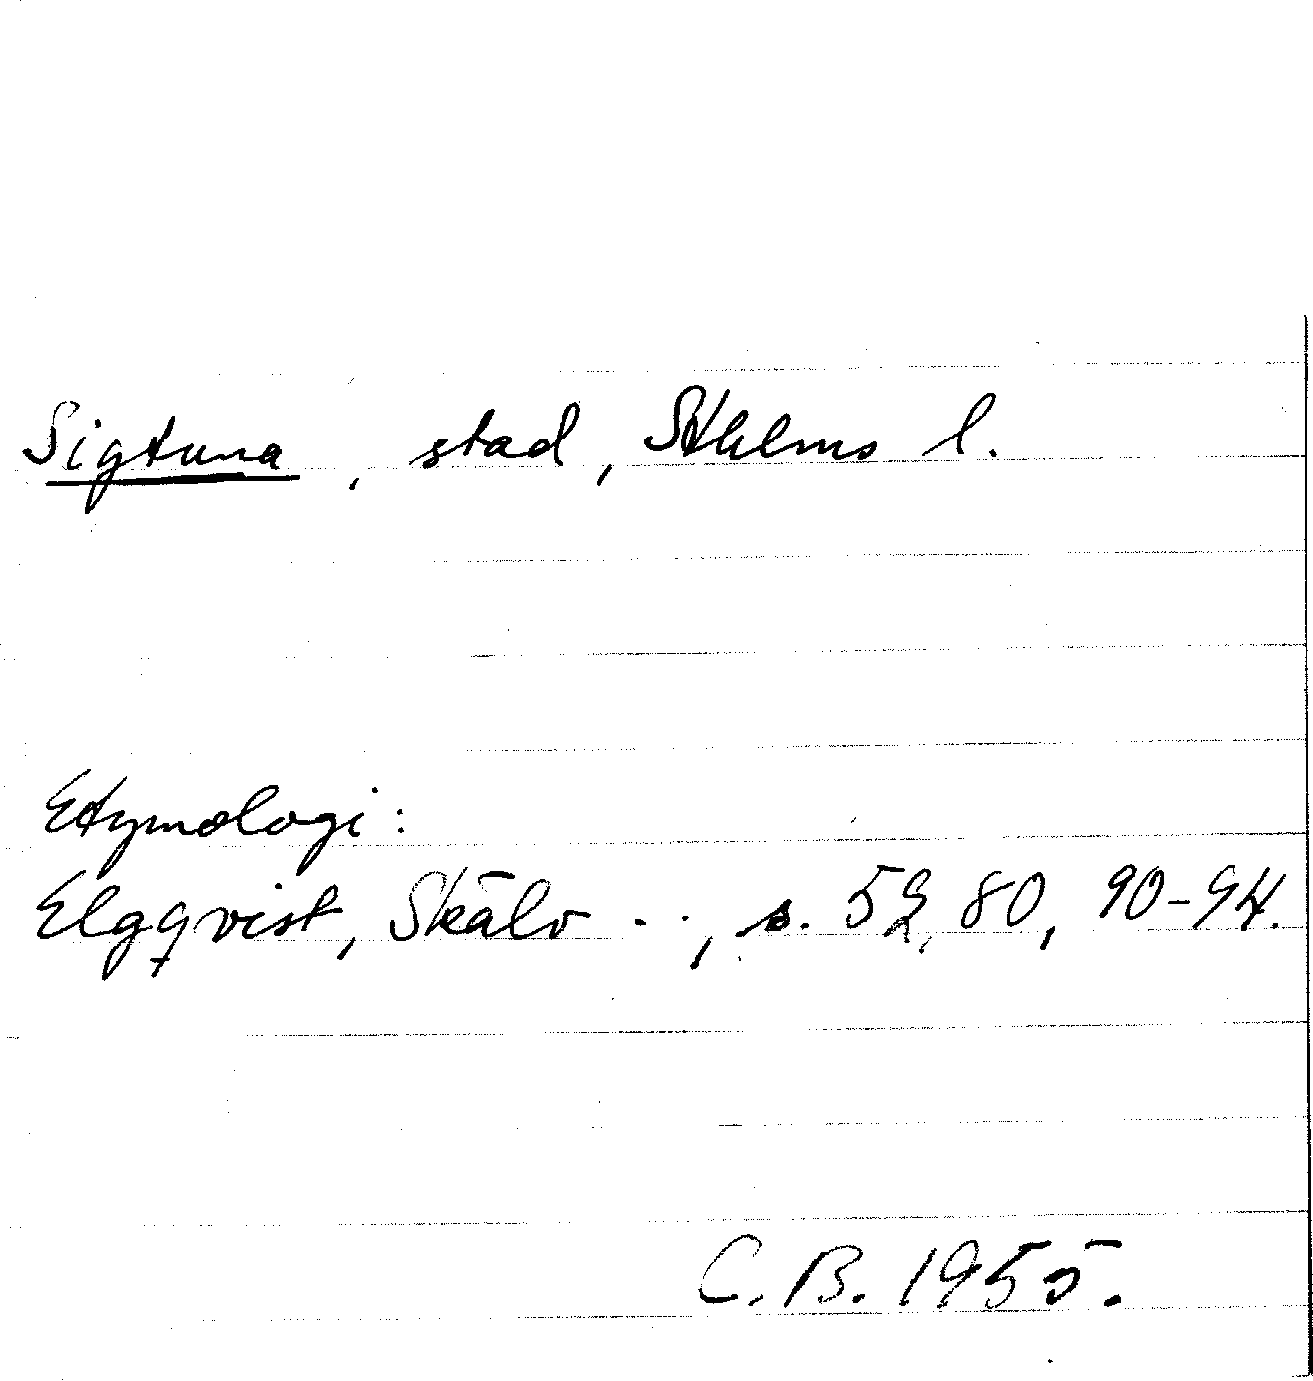 Sigtuna, stad, Sthlms l.
Etymologi:
Elgqvist, Skälv . ., s. 52, 80, 90-94.
C. B. 1955.